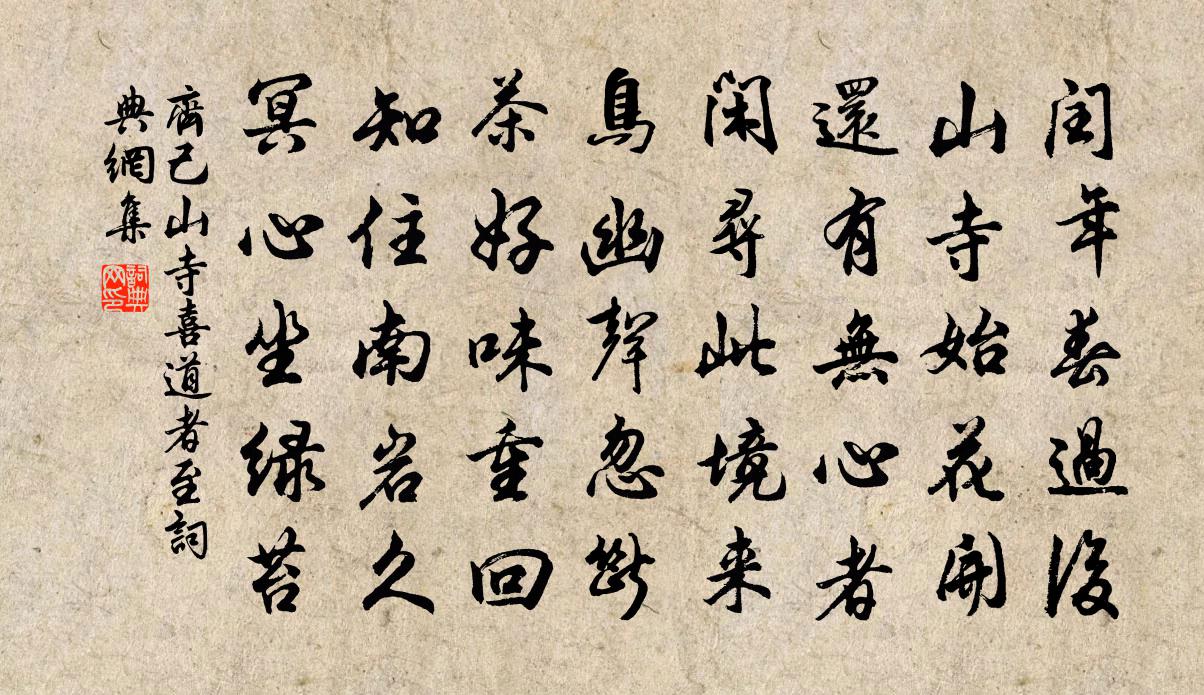 閏年春過後
山寺始花開
還有無心者
閑尋此境来
鳥幽聲忽斷
茶好味重回
知住南岩久
冥心坐緑苔
齊己山寺喜道者至詞
典網集
詞典
网印